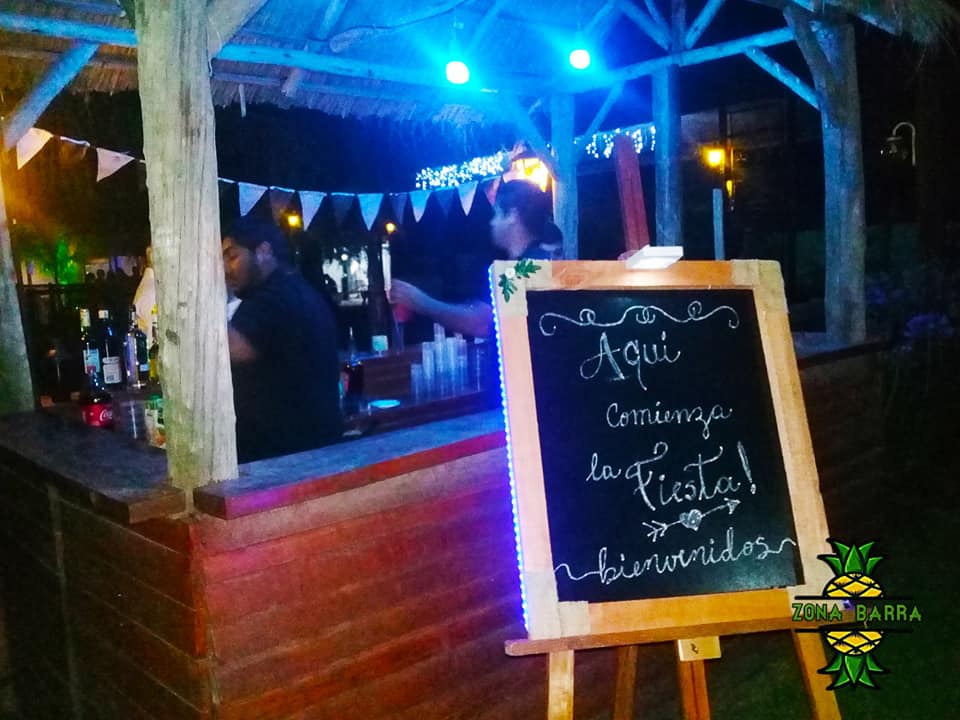 Aquí
comienza
la Fiesta!
bienvenidos
ZONA BARRA